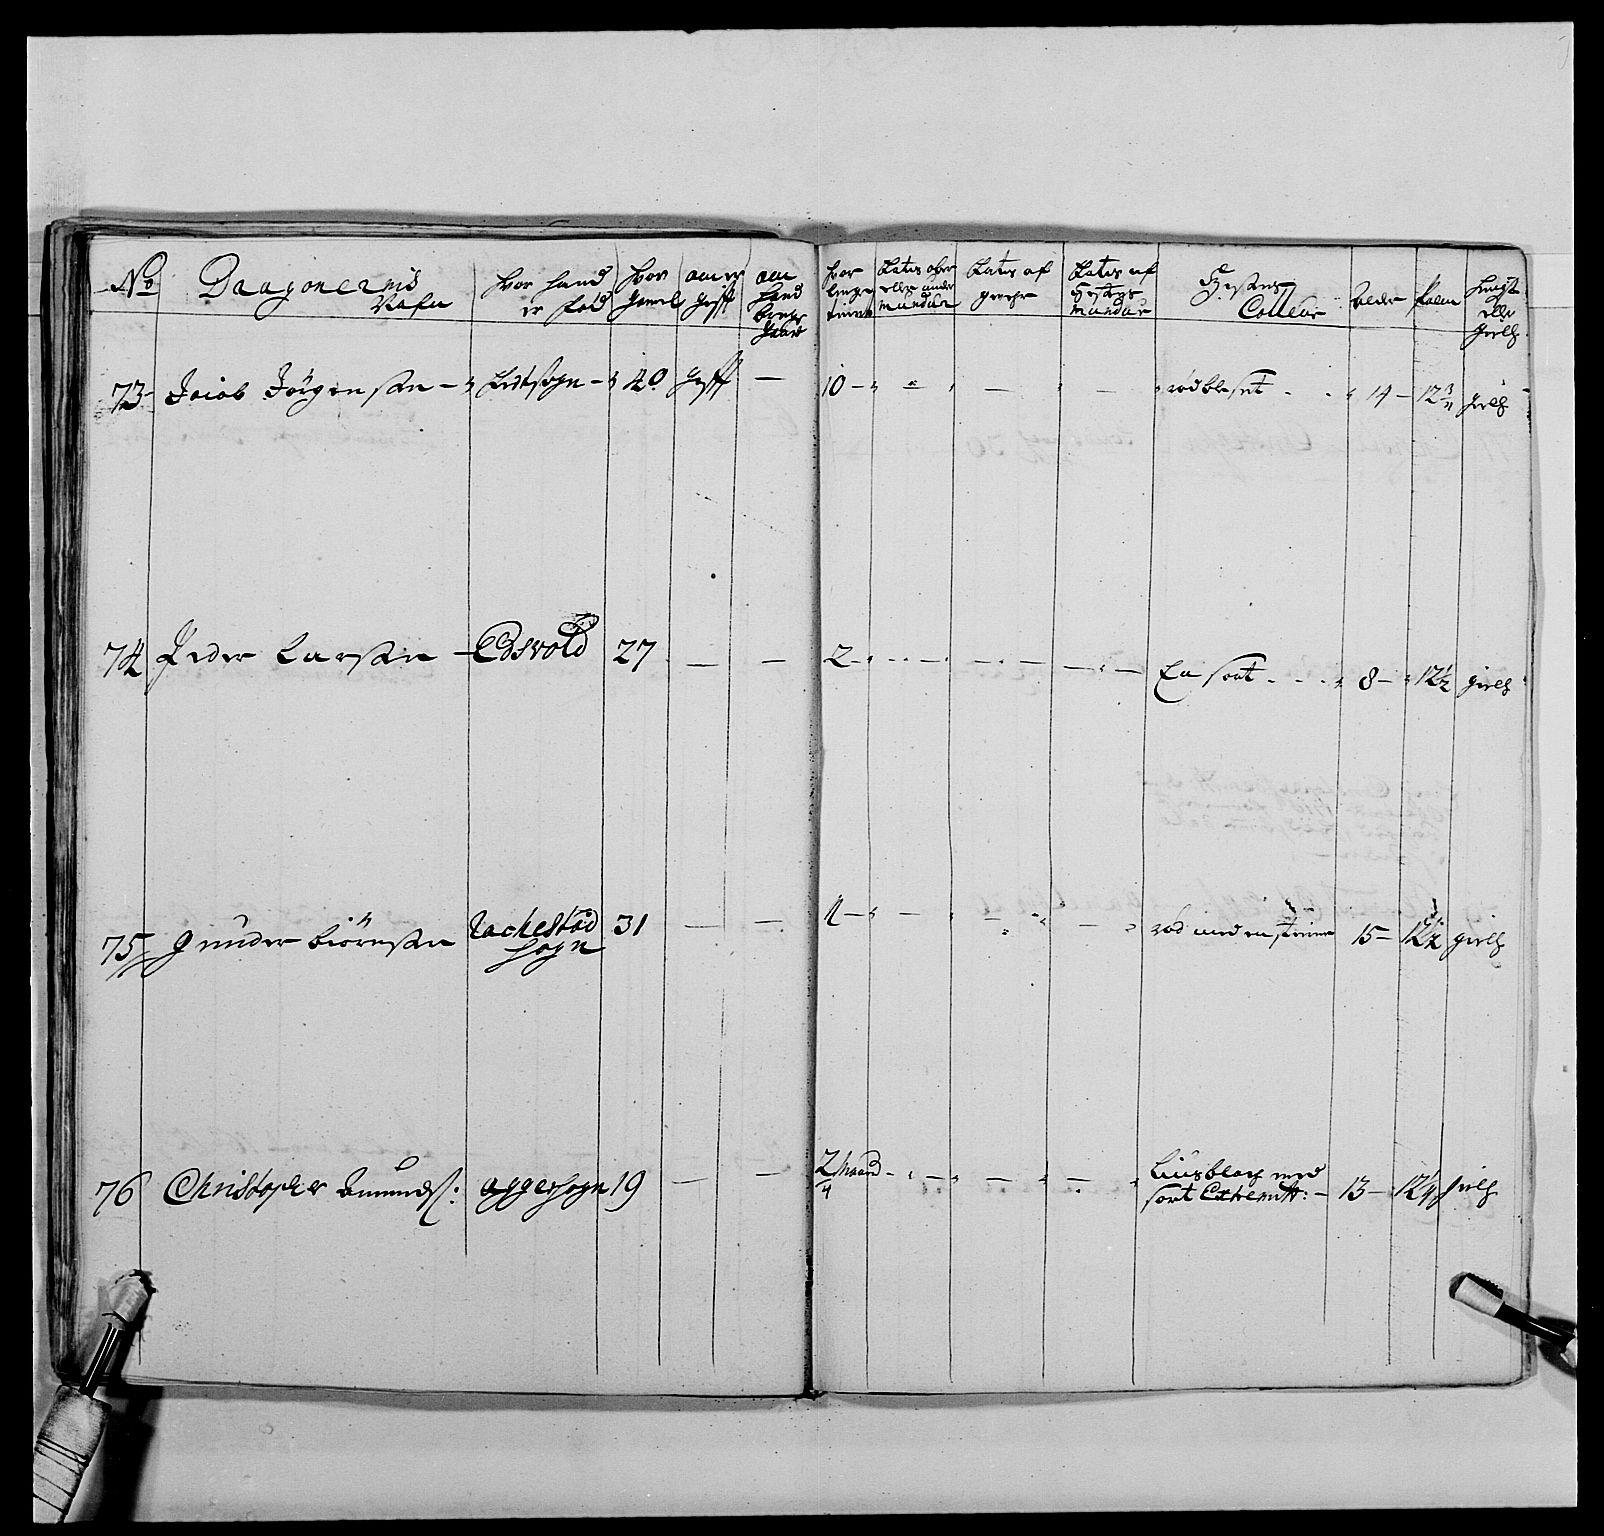 No Dragonernis Nafn
hvor hand er fød
hvor gamel
om er gift
om hand bruger gaar
hvor lenge tient
Lates ofver eller under mundur
Lates af gevehr
Lates af hestens mundur
Hestens Colleur
alder
Palm
hingst eller gield
73 Jacob Jörgensen - sogn - 40 gift - 10 - - - rød bleset - 14 - 12 3/4 gield
74 Peder Larsen - Edsvold 27 - - 2 - - - En sort - 8 - 12 1/2 gield
75 Gunder biörnsen Rachestad sogn 31 - - - - - rød med en stierne 15 - 12 1/2 gield
76 Christopher Amundss: aggersogn 19 - - 2/4 Maand - - - med sort Extremitt: - 13 - 12 1/4 gield